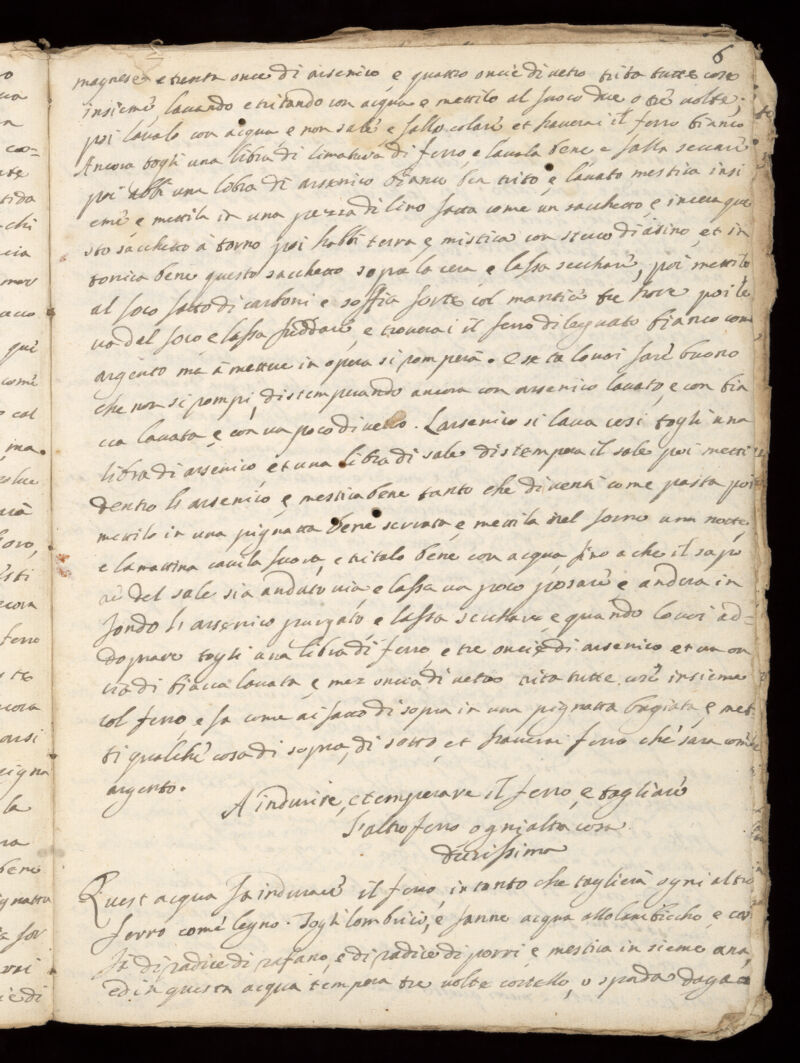 6
magnese e trenta once di arsenico e quattro oncie di vetro trita tutte cose
insieme, lavando e tritando con acqua e mettilo al fuoco due o tre volte,
poi lavalo con acqua e non sale e fallo colare et haverai il ferro bianco
Ancora togli una libra di limatura di ferro e lavala bene e falla seccare
poi habbi una libra di arsenico bianco ben trito e lavato mestica insi
eme e mettila in una pezza di lino fatta come un sacchetto e incera que
sto sacchetto à torno poi habbi terra e mistica con sterco di asino, et in
tonica bene questo sacchetto sopra la cera e lassa secchare, poi mettilo
al foco fatto di carboni e soffia forte col mantice tre hore poi le
va dal foco e lassa freddare, e troverai il ferro dileguato bianco come
argento ma à mettere in opera si romperà. e se ta lo voi fare buono
che non si rompi, distemperando ancora con arsenico lavato, e con bia
cca lavata e con un poco di vetro. L'arsenico si lava cosi togli una
libra di arsenico, et una libra di sale distempera il sale poi metti
dentro li arsenico e mestica bene tanto che diventi come pasta poi
mettilo in una pignatta bene serrata e mettila nel forno una notte,
e la mattina cavila fuora, e tritalo bene con acqua fino a che il sapo
re del sale sia andato via, e lassa un poco posare e andera in
fondo li arsenico purgato e lassa secchare e quando lo voi ad=
doprare togli una libra di ferro, e tre oncie di arsenico et un on
cia di biacca lavata e mez oncia di vetro trita tutte cose insieme
col ferro e fa come ai fatto di sopra in una pignatta bugiata e met
ti qualche cosa di sopra, di sotto, et haverai ferro che sara come
argento.
A indurire, e temperare il ferro, e tagliare
l'altro ferro ogni altra cosa
durissima
Quest acqua fa indurare il ferro, in tanto che taglierà ogni altro
ferro come legno. Togli lombrici, e fanne acqua allolambiccho, e cos
si di radice di rafano, e di radice di porri e mestica in sieme ana,
ed in questa acqua tempera tre volte cortello, o spada daga